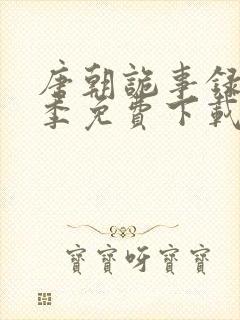 唐朝詭事録
季免費下載
寶寶呀寶寶